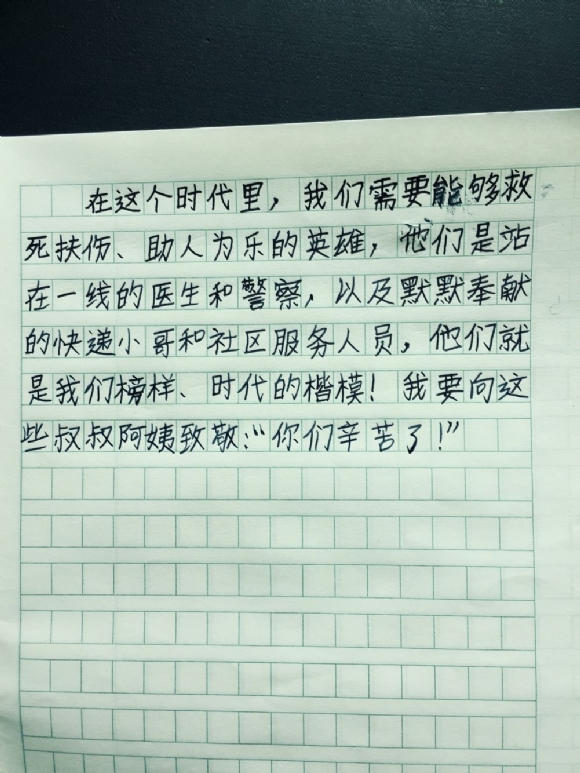 在这个时代里，我们需要能够救
死扶伤、助人为乐的英雄，他们是站
在一线的医生和警察，以及默默奉献
的快递小哥和社区服务人员，他们就
是我们榜样、时代的楷模！我要向这
些叔叔阿姨致敬：“你们辛苦了！”